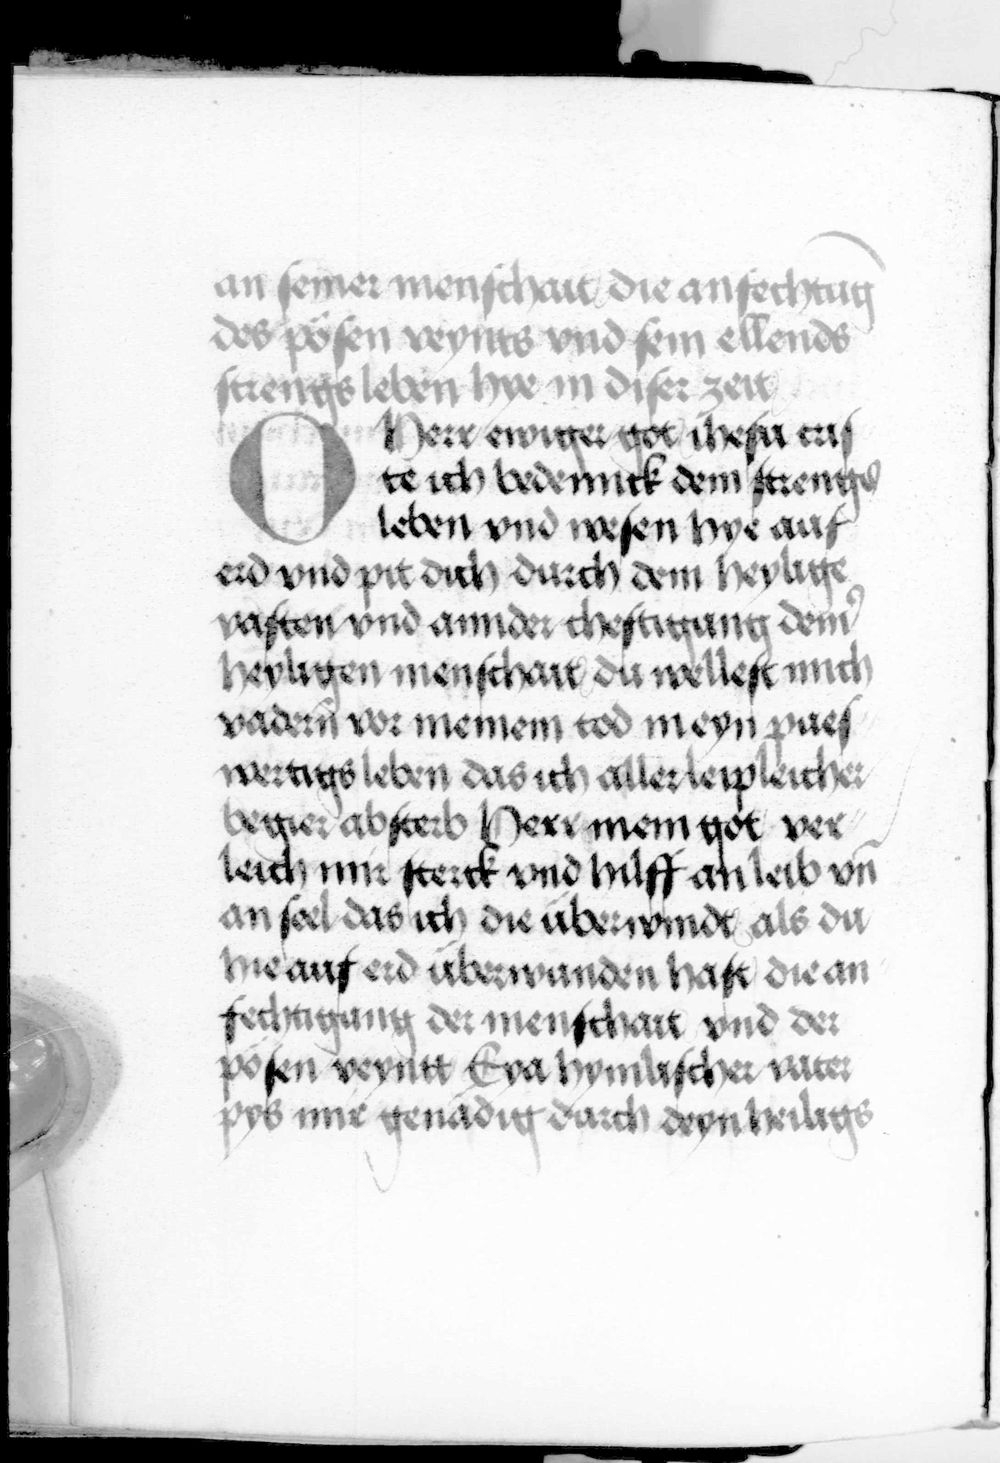 an seiner menschait die anfechtūg
des pösen veynts vnd sein ellends
strengs leben hye in diser zeit
O Herr ewiger got ihesu cris
te ich bedennck dein strengs
leben vnd wesen hye auf
erd vnd pit dich durch dein heylige
vasten vnd annder chestigung deiner
heyligen menschait du wellest mich
vadern vor meinem tod in eyn pues
wertigs leben das ich aller leipleicher
begier absterb Herr mein got ver
leich mir sterck vnd hilff an leib vn̄
an seel das ich die überwindt als du
hie auf erd überwunden hast die an
fechtigung der menschait vnd der
pösen veyntt Eya hymlischer vater
pys mir genädig durch deyn heiligs